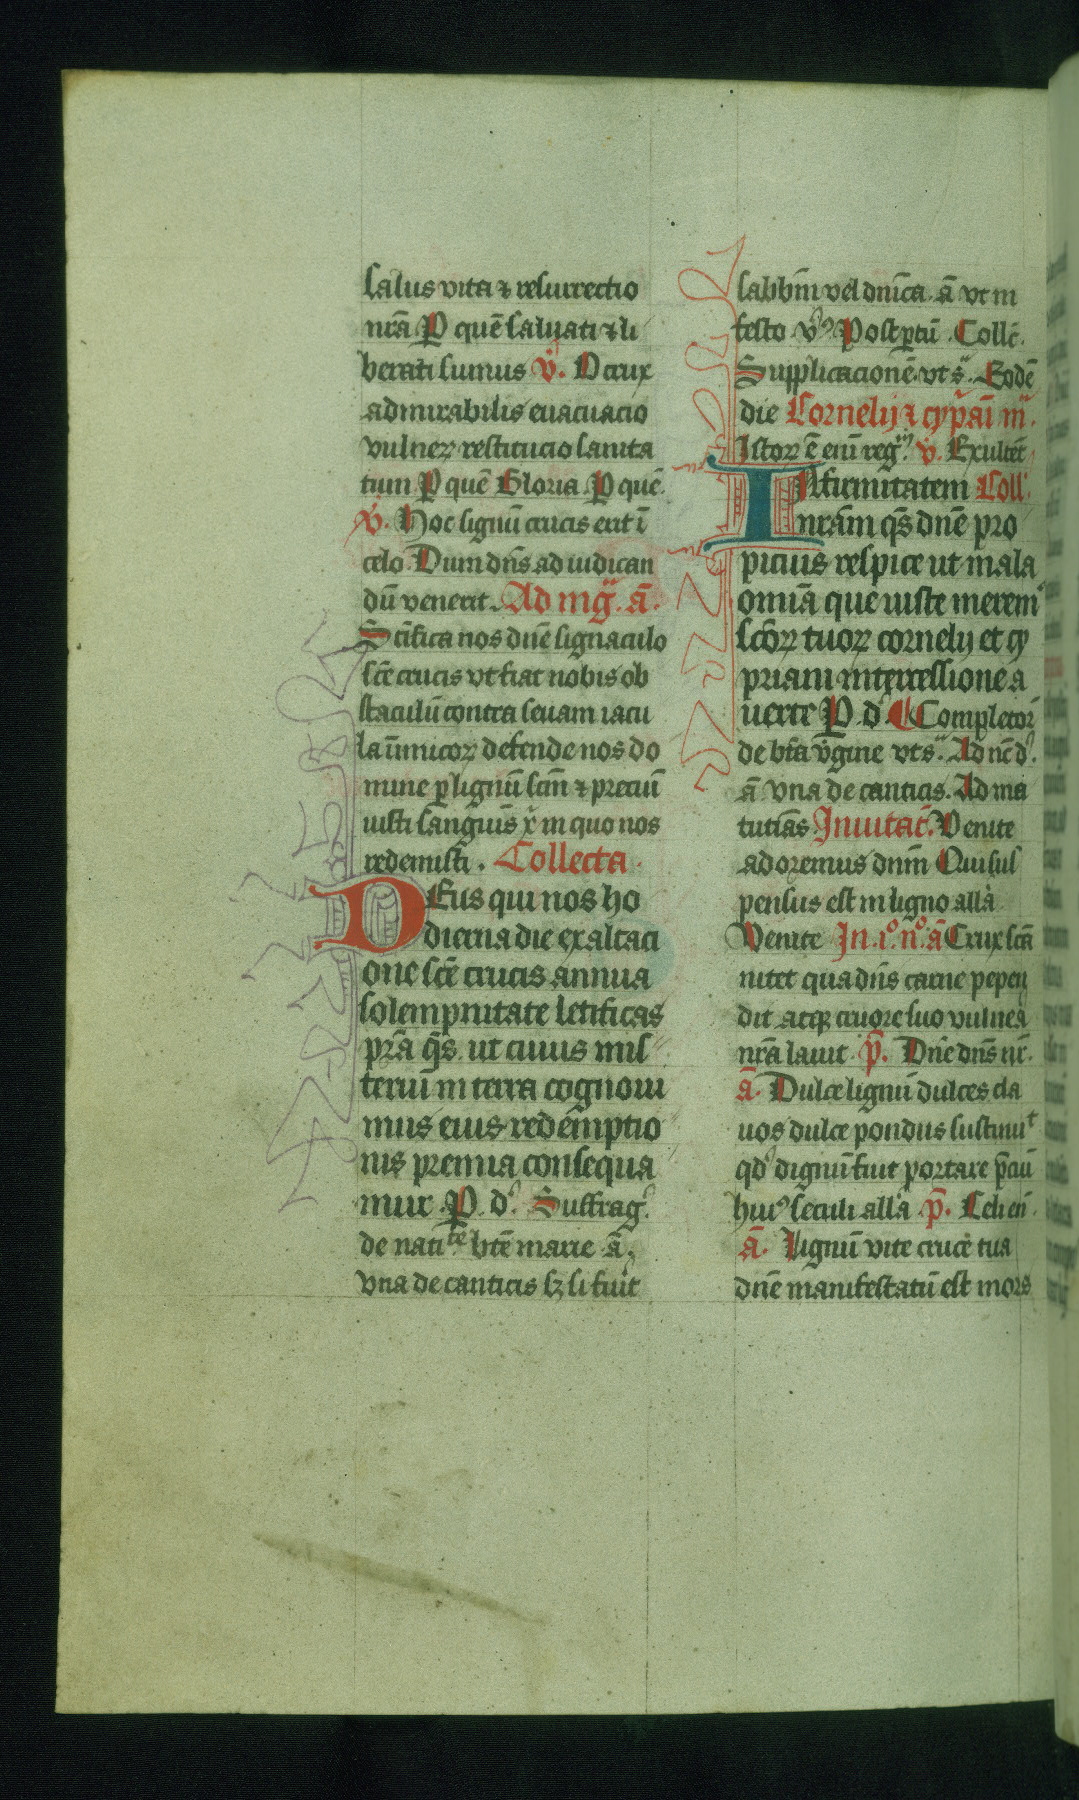 salus vita ⁊ resurrectio
nr̄a P̲ quē saluati ⁊ li
berati sumus v̇. O crux
admirabilis euacuacio
vulneꝝ restitucio sanita
tum P̲ quē Gloria P̲ quē.
v̇. Hoc lignū crucis erit ī
celo. Dum dn̄s ad iudican
dū venerit. Ad mḡ. ā.
Sc̄ifica nos dn̄e signaculo
sc̄e crucis vt fiat nobis ob
staculū contra seuam iacu
la īnimicoꝝ defende nos do
mine p̲ lignū sc̄m ⁊ preciū
iusti sanguīs x̄ in quo nos
redemisti. Collecta.
DEus qui nos ho
dierna die exaltaci
one sc̄e crucis annua
solempnitate letificas
pr̄a q̄s. ut cuius mis
teriū in terra cognoui
mus eius redēmptio
nis premia consequa
mur. P̲. d̾. Suffrag̾.
de nati^te bt̄e marie ā.
vna de canticis sꝫ si fuīt
sabbm̄ vel dn̄ica. ā vt in
festo v̾ Post p̲tū. Collc̄.
Supplicacionē. vt s̄. Eodē
die Cornelij ⁊ cyp̄ai m̄.
Istoꝝ ē eiū reg^m. v̇. Exultēt
INfirmitatem Coll̄.
nr̄am q̄s dn̄e pro
picius respice ut mala
omīa que iuste merem̾
sc̄oꝝ tuoꝝ cornelij et cy
priani intercessione a
uerte P̲ d̾. Completor̄
de bt̄a v̄gine vt s̄. Ad nē d̾.
ā vna de canticis. Ad ma
tutīas Inuitat̄. Venite
adoremus dnm̄ Qui sus
pensus est in ligno allā
Venite In .i°. n°. ā Crux sc̄a
nitet qua dn̄s carne pepen
dit atqꝫ cruore suo vulnēa
nr̄a lauit. p̄. Dn̄e dn̄s nr̄.
ā. Dulce lignū dulces cla
uos dulce pondus sustinu^t
qd̾ dignū fuit portare p̄ciū
hui̾ seculi allā p̄. Celi en̄.
ā. Lignū vite crucē tua
dn̄e manifestatū est mors